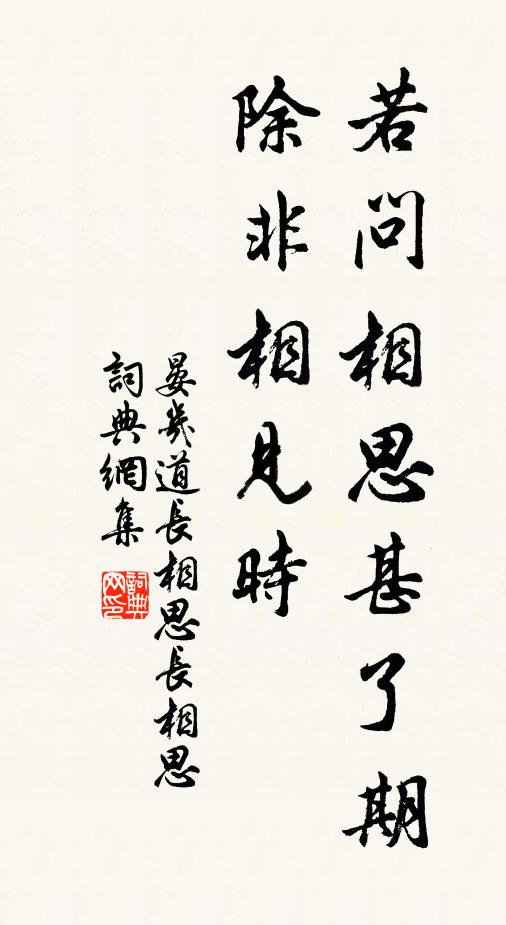 若問相思甚了期
除非相見時
晏幾道長相思長相思
詞典網集
詞典网印